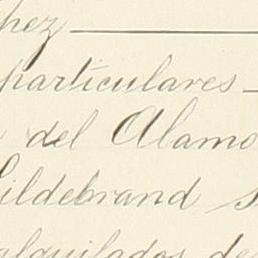 particulares
del Alamo
Hildebrand
alquilados de